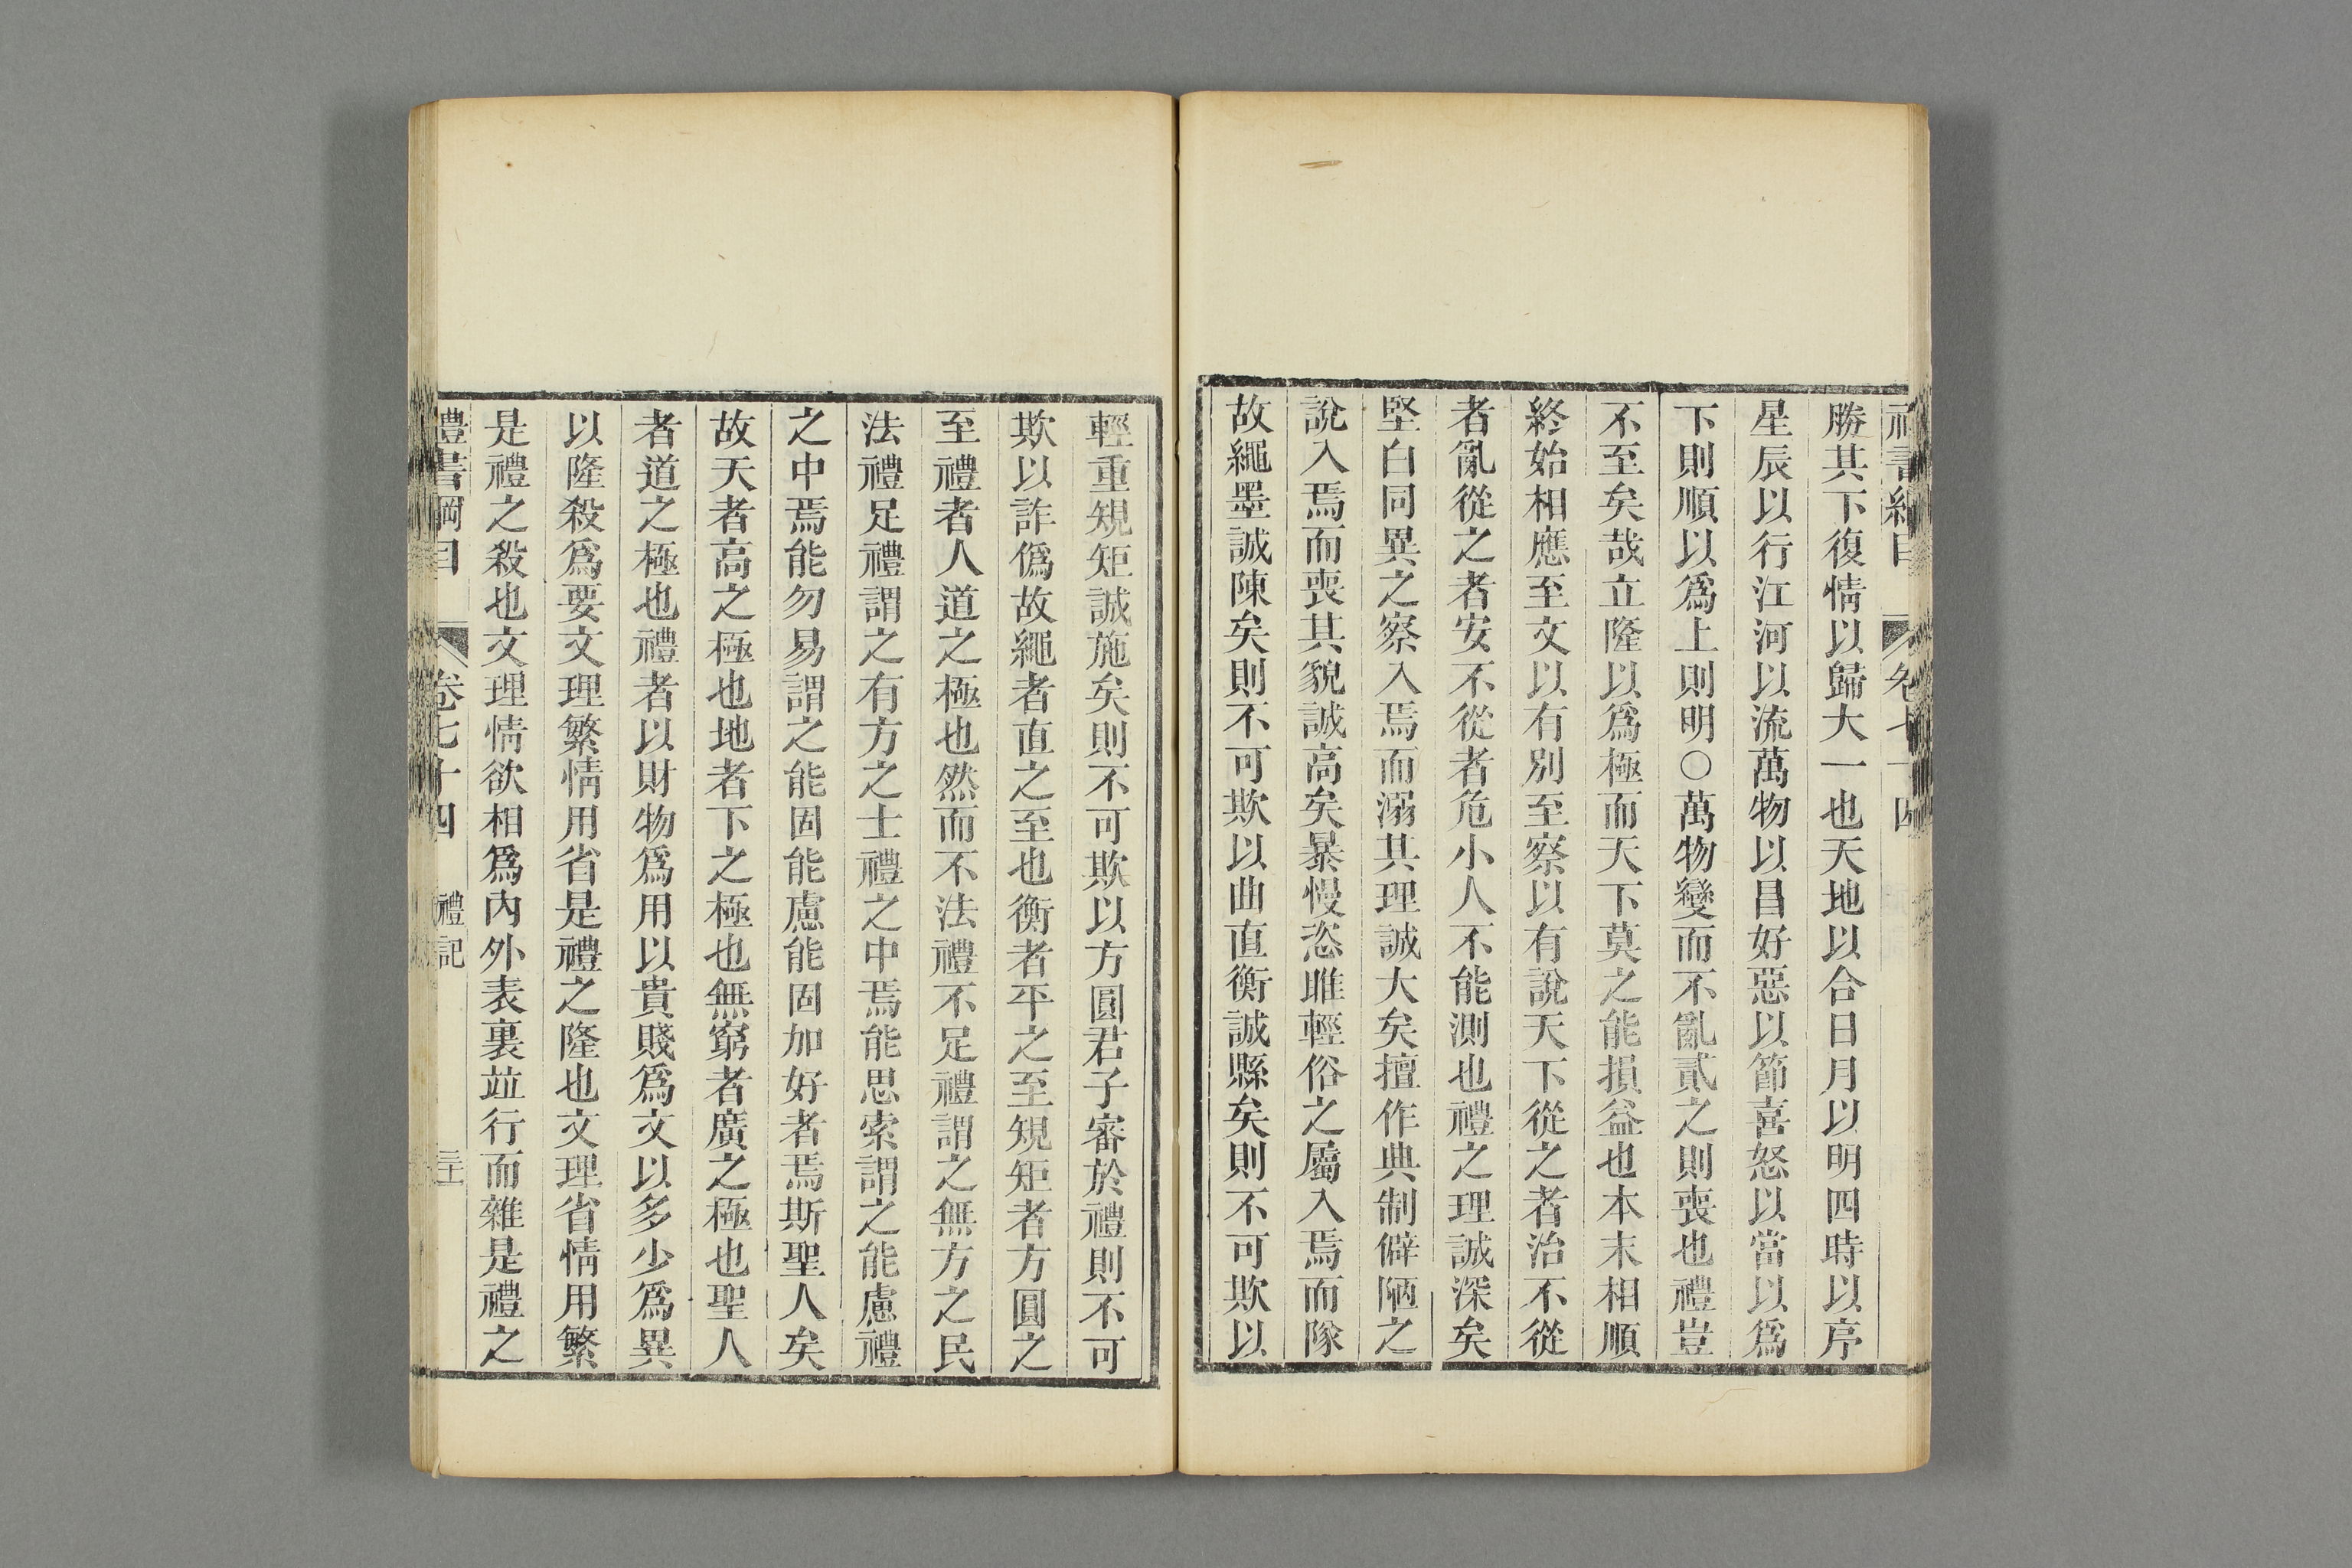 勝其下復情以歸大一也天地以合日月以明四時以序
星辰以行江河以流萬物以昌好惡以節喜怒以當以爲
下則順以爲上則明〇萬物變而不亂貳之則喪也禮豈
不至矣哉立隆以爲極而天下莫之能損益也本末相順
終始相應至文以有別至察以有說天下從之者治不從
者亂從之者安不從者危小人不能測也禮之理誠深矣
堅白同異之察入焉而溺其理誠大矣擅作典制僻陋之
說入焉而喪其貌誠高矣暴慢恣睢輕俗之屬入焉而隊
故繩墨誠陳矣則不可欺以曲直衡誠縣矣則不可欺以
輕重規矩誠施矣則不可欺以方圓君子審於禮則不可
欺以詐僞故繩者直之至也衡者平之至規矩者方圓之
至禮者人道之極也然而不法禮不足禮謂之無方之民
法禮足禮謂之有方之士禮之中焉能思索謂之能慮禮
之中焉能勿易謂之能固能慮能固加好者焉斯聖人矣
故天者高之極也地者下之極也無窮者廣之極也聖人
者道之極也禮者以財物爲用以貴賤爲文以多少爲異
以隆殺爲要文理繁情用省是禮之隆也文理省情用繁
是禮之殺也文理情欲相爲內外表裏竝行而雜是禮之
禮書綱目 卷七十四 禮記